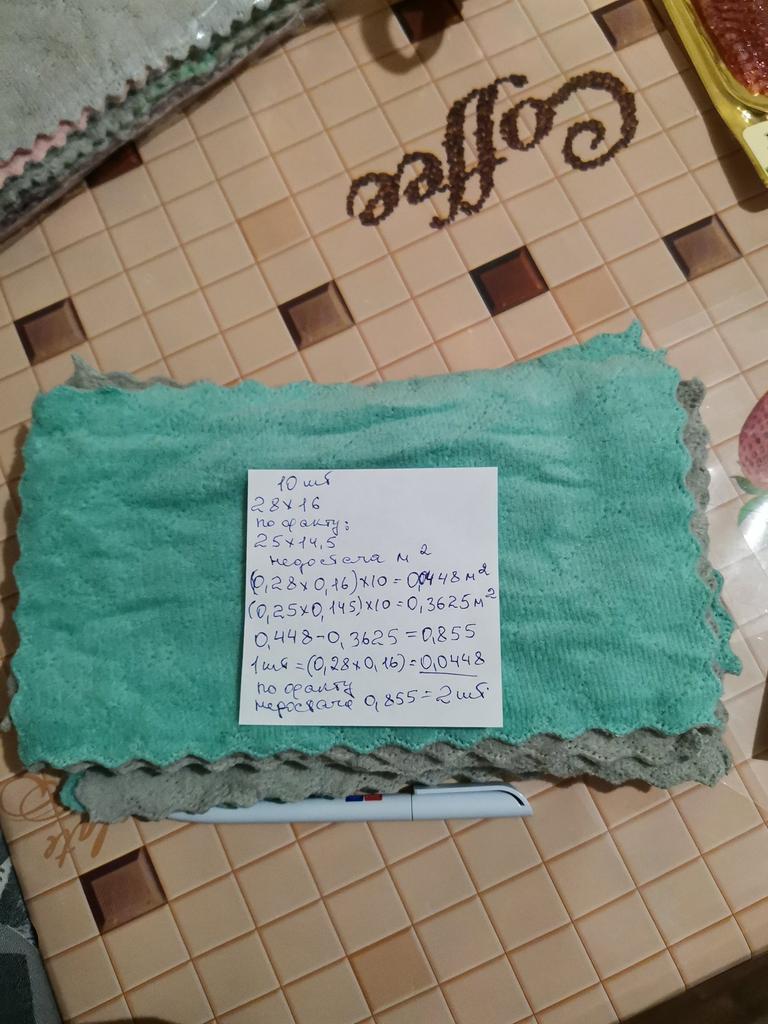 Coffee
10 шт
28×16
по факту:
25×14,5
недостача м²
(0,28×0,16)×10=0,0448м²
(0,25×0,145)×10=0,3625м²
0,448-0,3625=0,855
1шт=(0,28×0,16)=0,0448
по факту
недостача 0,855=2шт